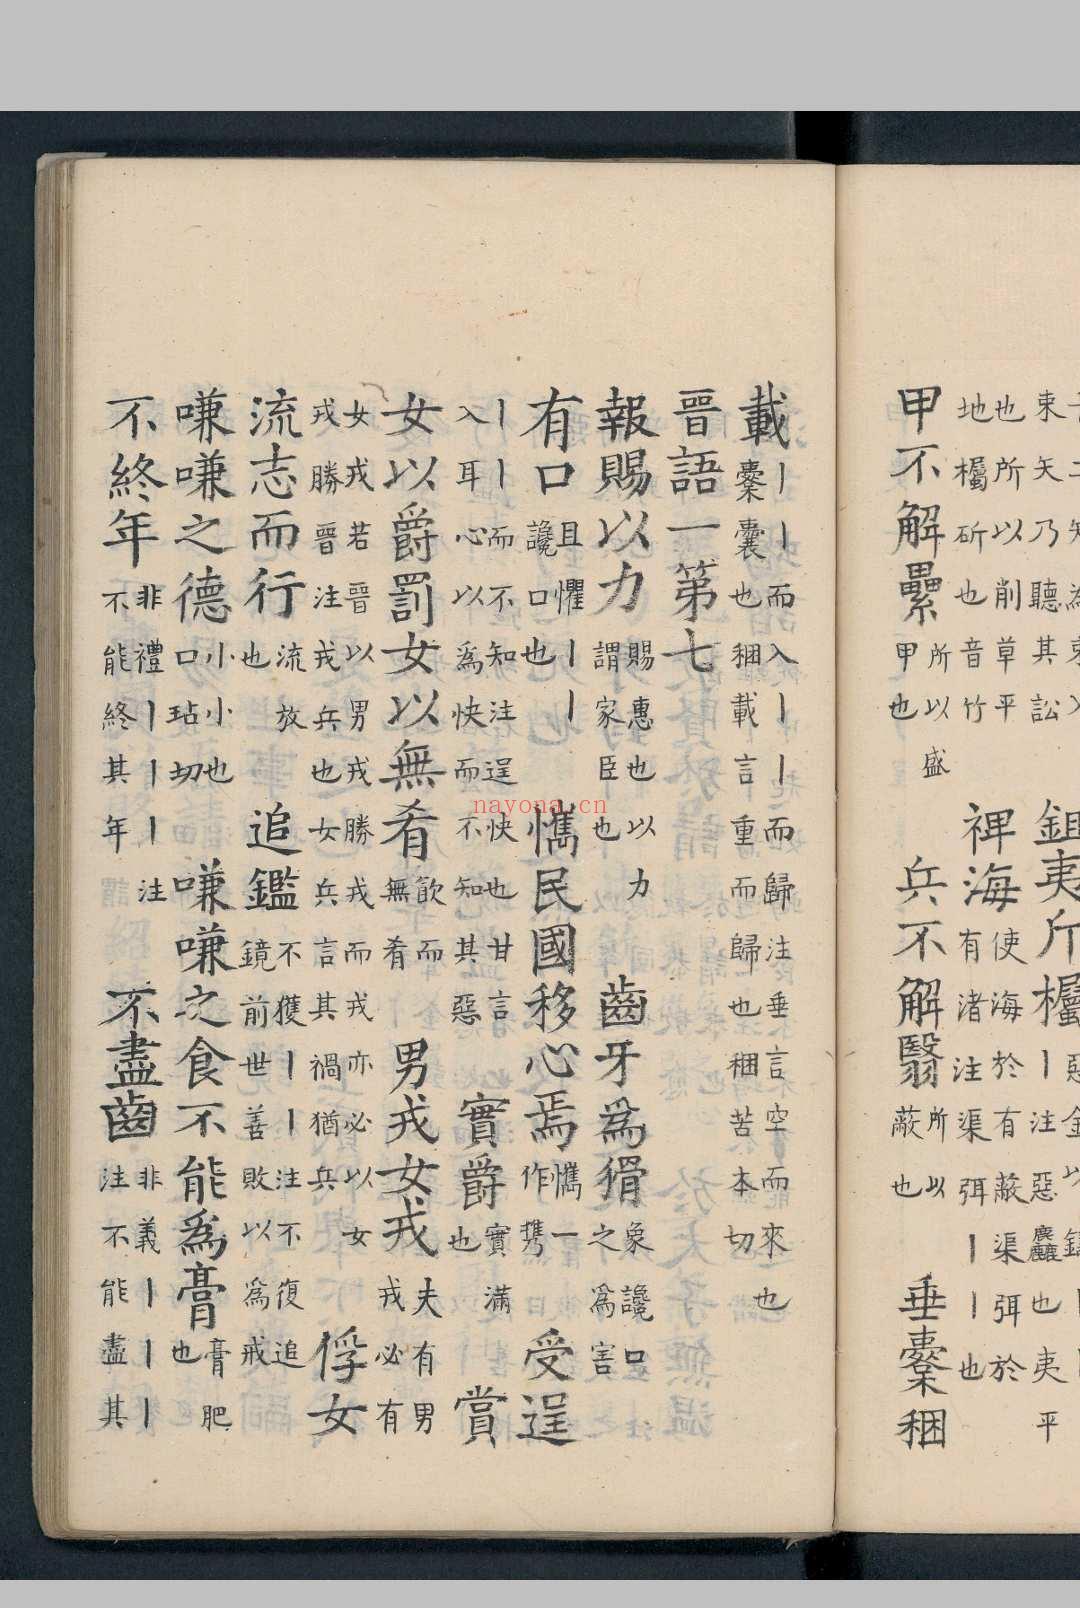 束矢乃聽其訟
鉏夷斤欘
注惡
也夷平
也所以削草平
地欘斫也音竹
裨海
使海於有蔽渠弭於
有渚注渠弭丨丨也
甲不解纍
所以盛
甲也
兵不解翳
所以
蔽也
垂橐稇
載
丨丨而入丨丨而歸注垂言空而來也
橐囊也稇載言重而歸也稇苦本切
晉語一第七
報賜以力
賜惠也以力
謂家臣也
齒牙為猾
象讒口
之為害
有口
且懼丨丨
讒口也
懏民國移心焉
懏一
作携
受逞
丨丨而不知注逞快也甘言
入耳心以為快而不知其惡
實爵
實滿
也
賞
女以爵罰女以無肴
飲而
無肴
男戎女戎
夫有男
戎必有
女戎若晉以男戎勝戎而戎亦必以女
戎勝晉注戎兵也女兵言其禍猶兵
俘女
流志而行
流放
也
追鑑
不獲丨丨注不復追
鏡前世善敗以為戒
嗛嗛之德
小小也
口玷切
嗛嗛之食不能為膏
膏肥
也
不終年
非禮丨丨丨注
不能終其年
不盡齒
非義丨丨丨
注不能盡其
nayona.cn